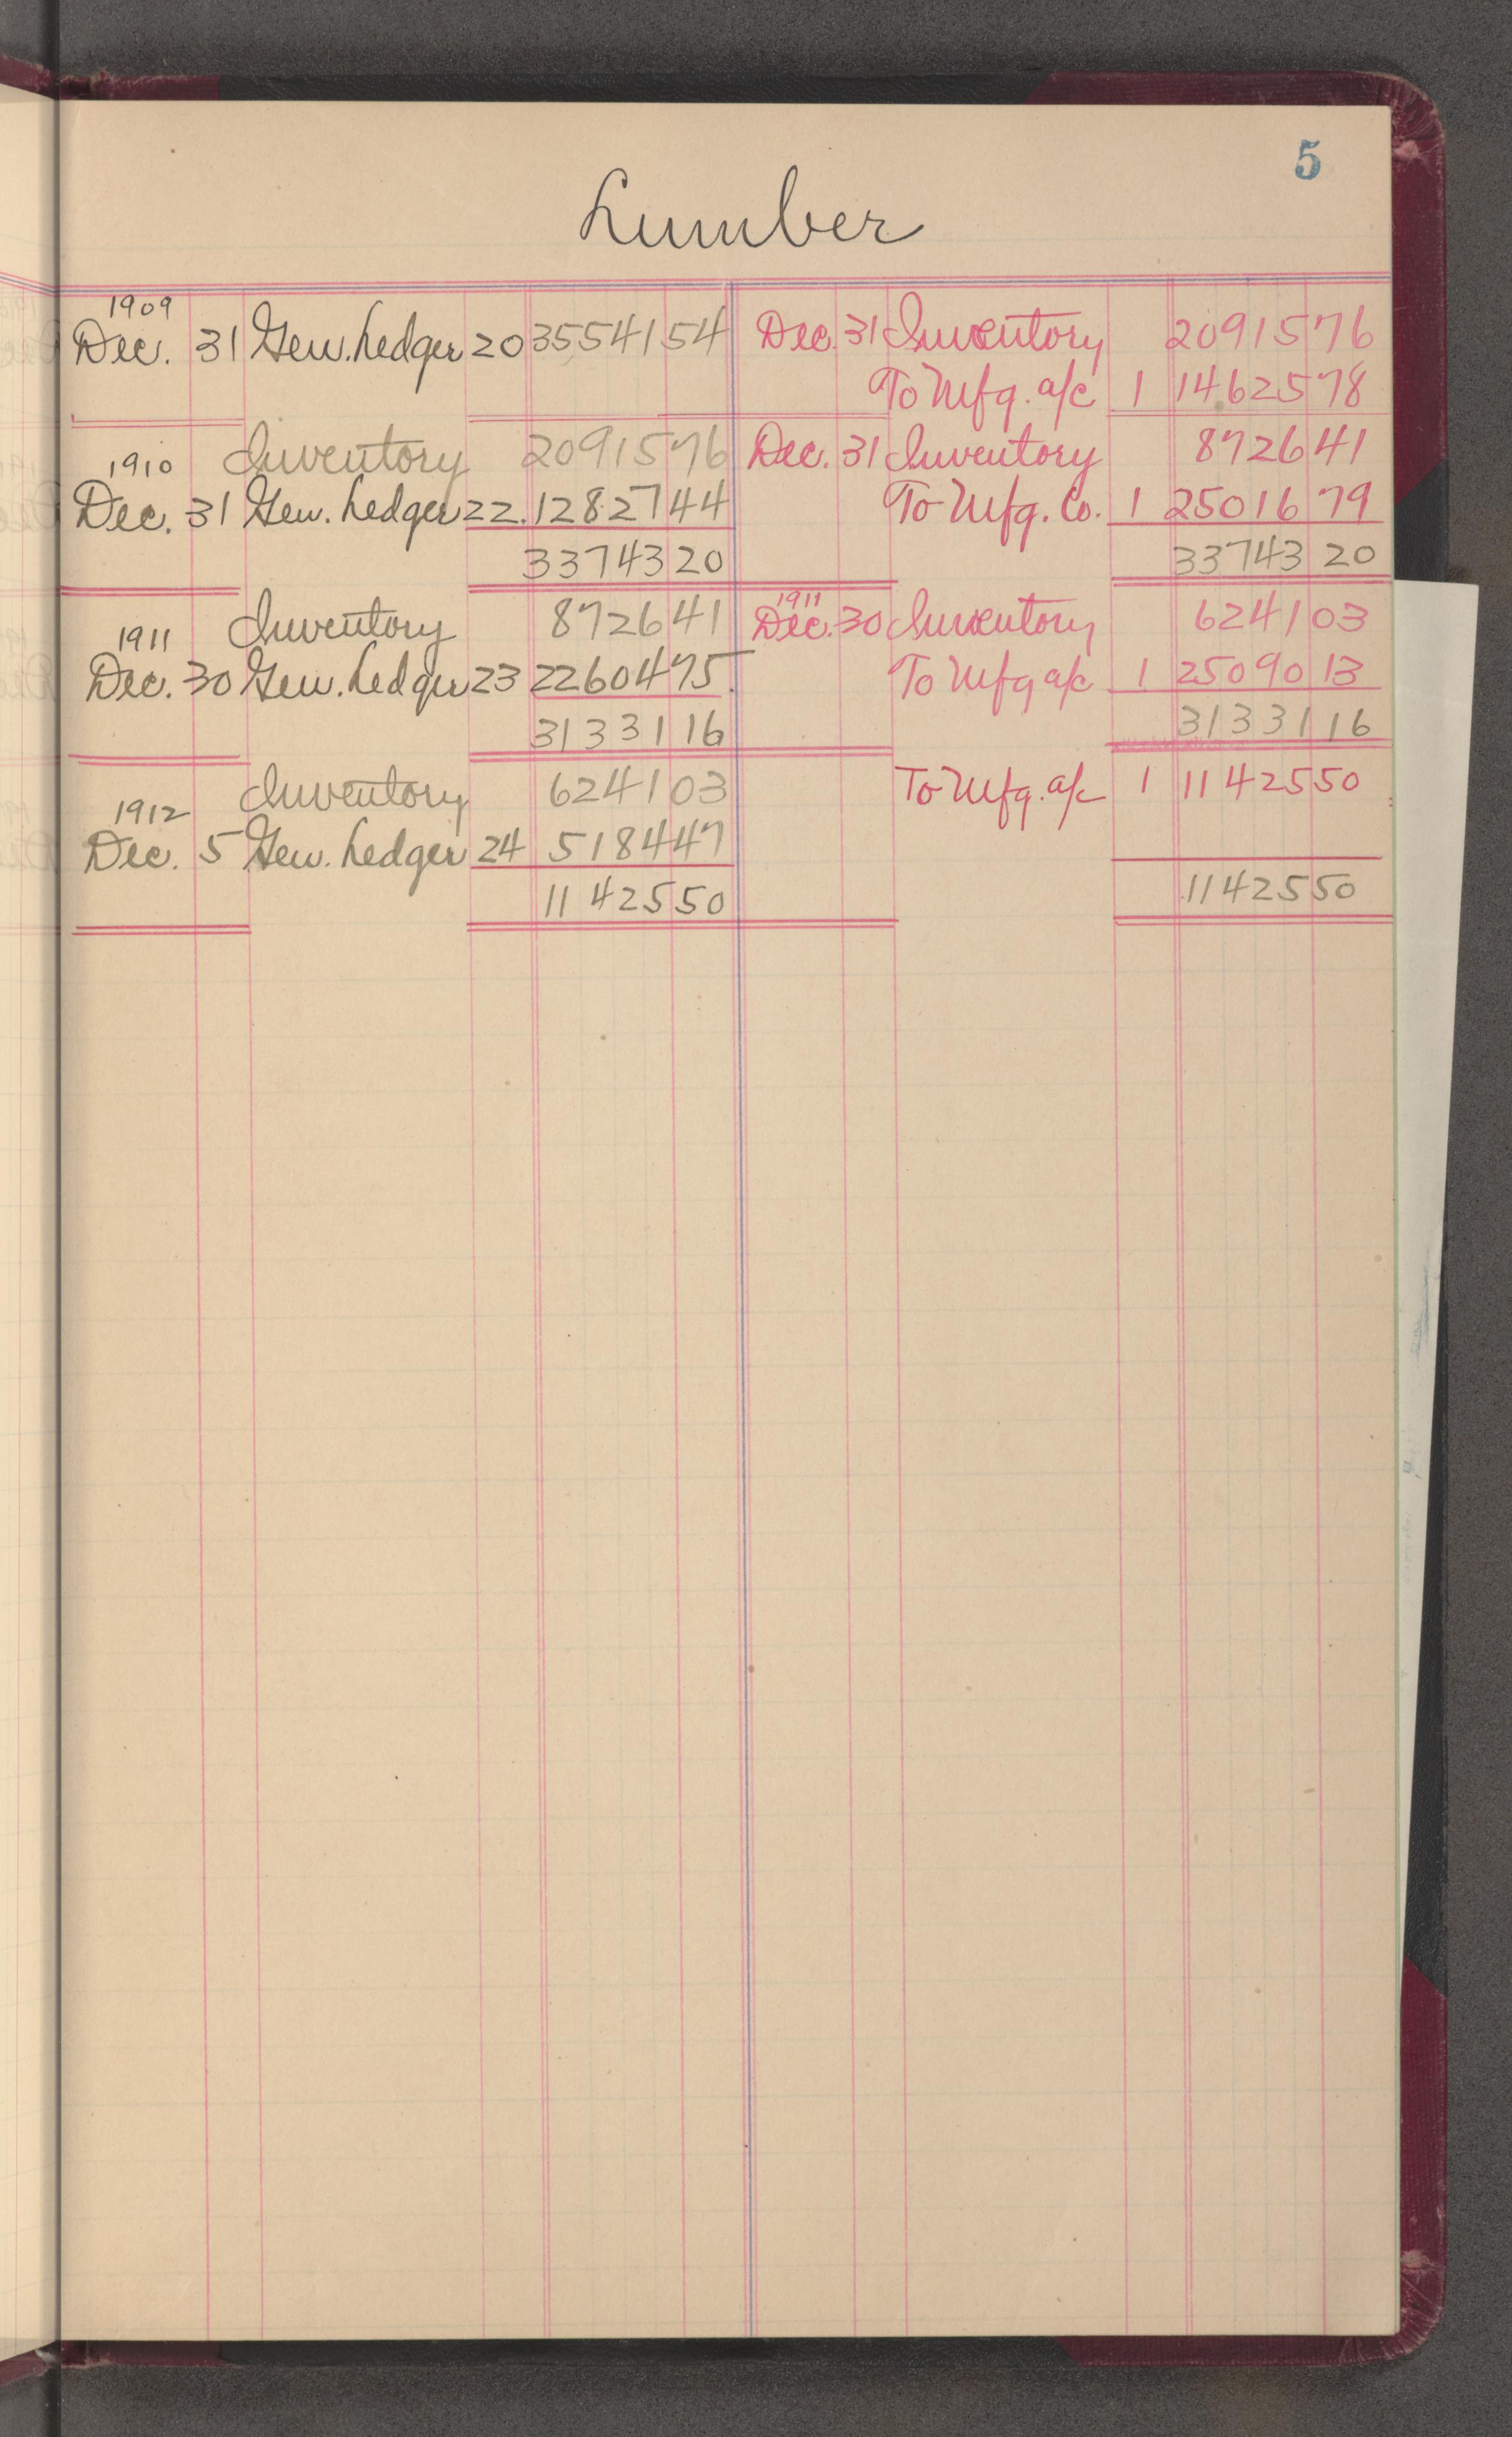 5
Lumber
1909
Dec. 31 Gen. Ledger 20 35541 54 Dec. 31 Inventory 20915 76
To Mfg. a/c 1 14625 78
Inventory 20915 76 Dec. 31 Inventory 8726 41
1910
Dec. 31 Gen. Ledger 22. 12827 44 To Mfg. Co. 1 25016 79
33743 20 33743 20
Inventory 8726 41 1911 Dec. 30 Inventory 6241 03
1911
Dec. 30 Gen. Ledger 23 22604 75 To Mfg a/c 1 25090 13
31331 16 31331 16
Inventory 6241 03 To Mfg. a/c 1 11425 50
1912
Dec. 5 Gen. Ledger 24 5184 47
11425 50 11425 50